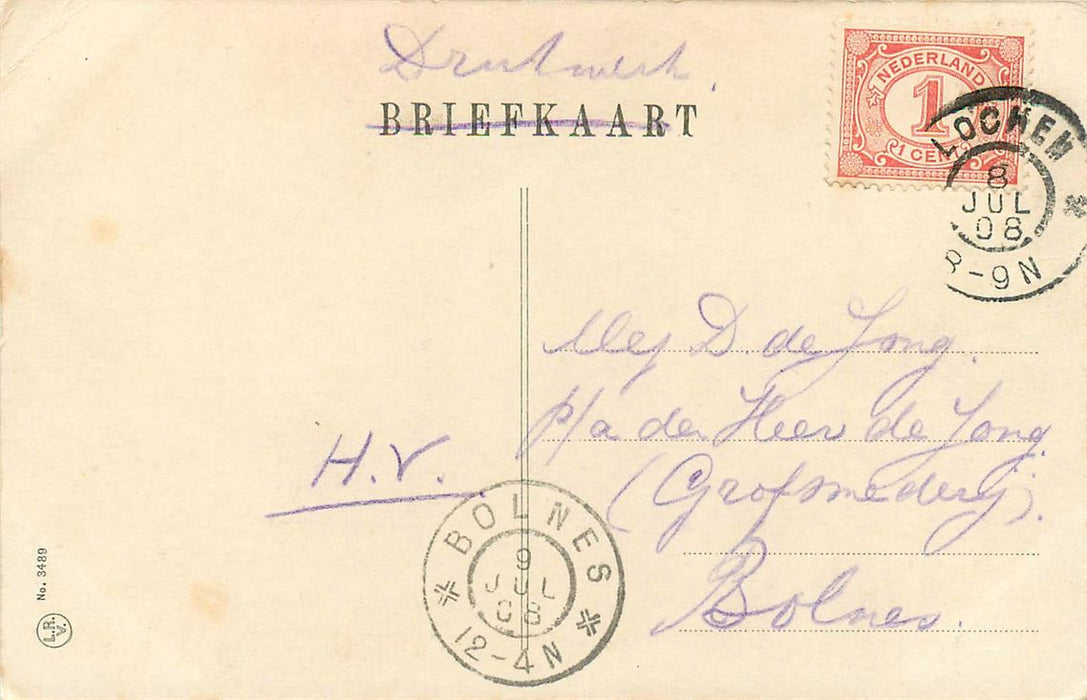 Drukwerk.
BRIEFKAART
NEDERLAND
1
1 CENT
LOCHEM
8
JUL
08
8-9N
Mej D. de Jong.
p/a den Heer de Jong.
(Grofsmederij).
Bolnes.
H.V.
BOLNES
9
JUL
08
12-4N
No. 3489
L.R.
V.